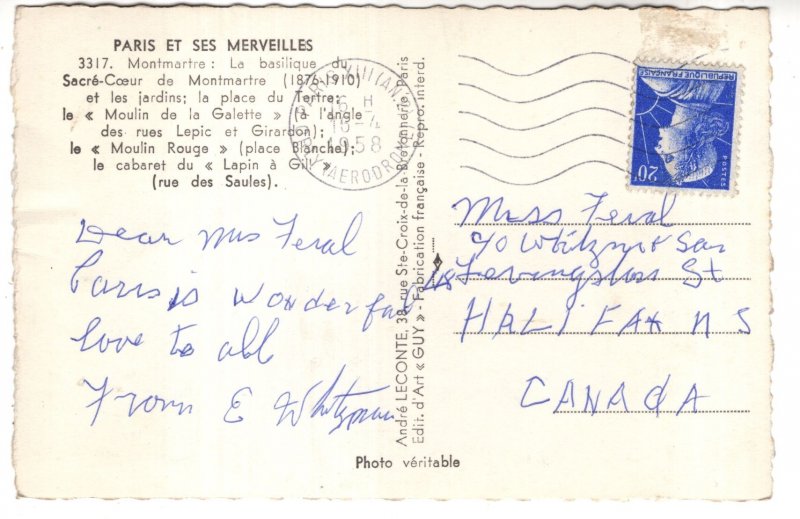 PARIS ET SES MERVEILLES
3317. Montmartre : La basilique du
Sacré-Cœur de Montmartre (1876-1910)
et les jardins; la place du Tertre;
le « Moulin de la Galette » (à l'angle
des rues Lepic et Girardon);
le « Moulin Rouge » (place Blanche);
le cabaret du « Lapin à Gill »
(rue des Saules).
Dear Mrs Feral
Paris is wonderful
love to all
From E Whitzman
André LECONTE, 38, rue Ste-Croix-de-la-Bretonnerie, Paris
Edit. d'Art « GUY » - Fabrication française - Repro. interd.
6 H
1958
AERODROME
REPUBLIQUE FRANÇAISE
POSTES
20F
Miss Feral
c/o Whitzman
St
HALIFAX N S
CANADA
Photo véritable